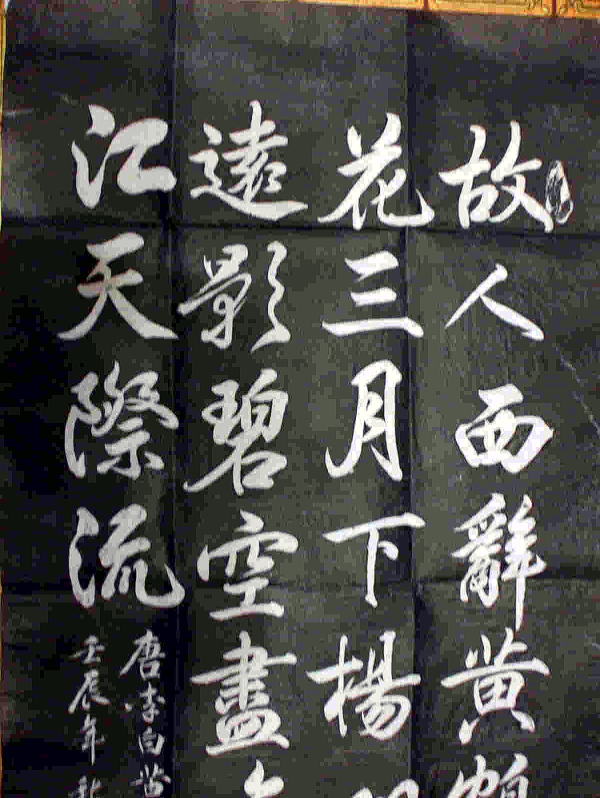 故人西辭黄
花三月下楊
遠影碧空盡
江天際流
唐李白
壬辰年